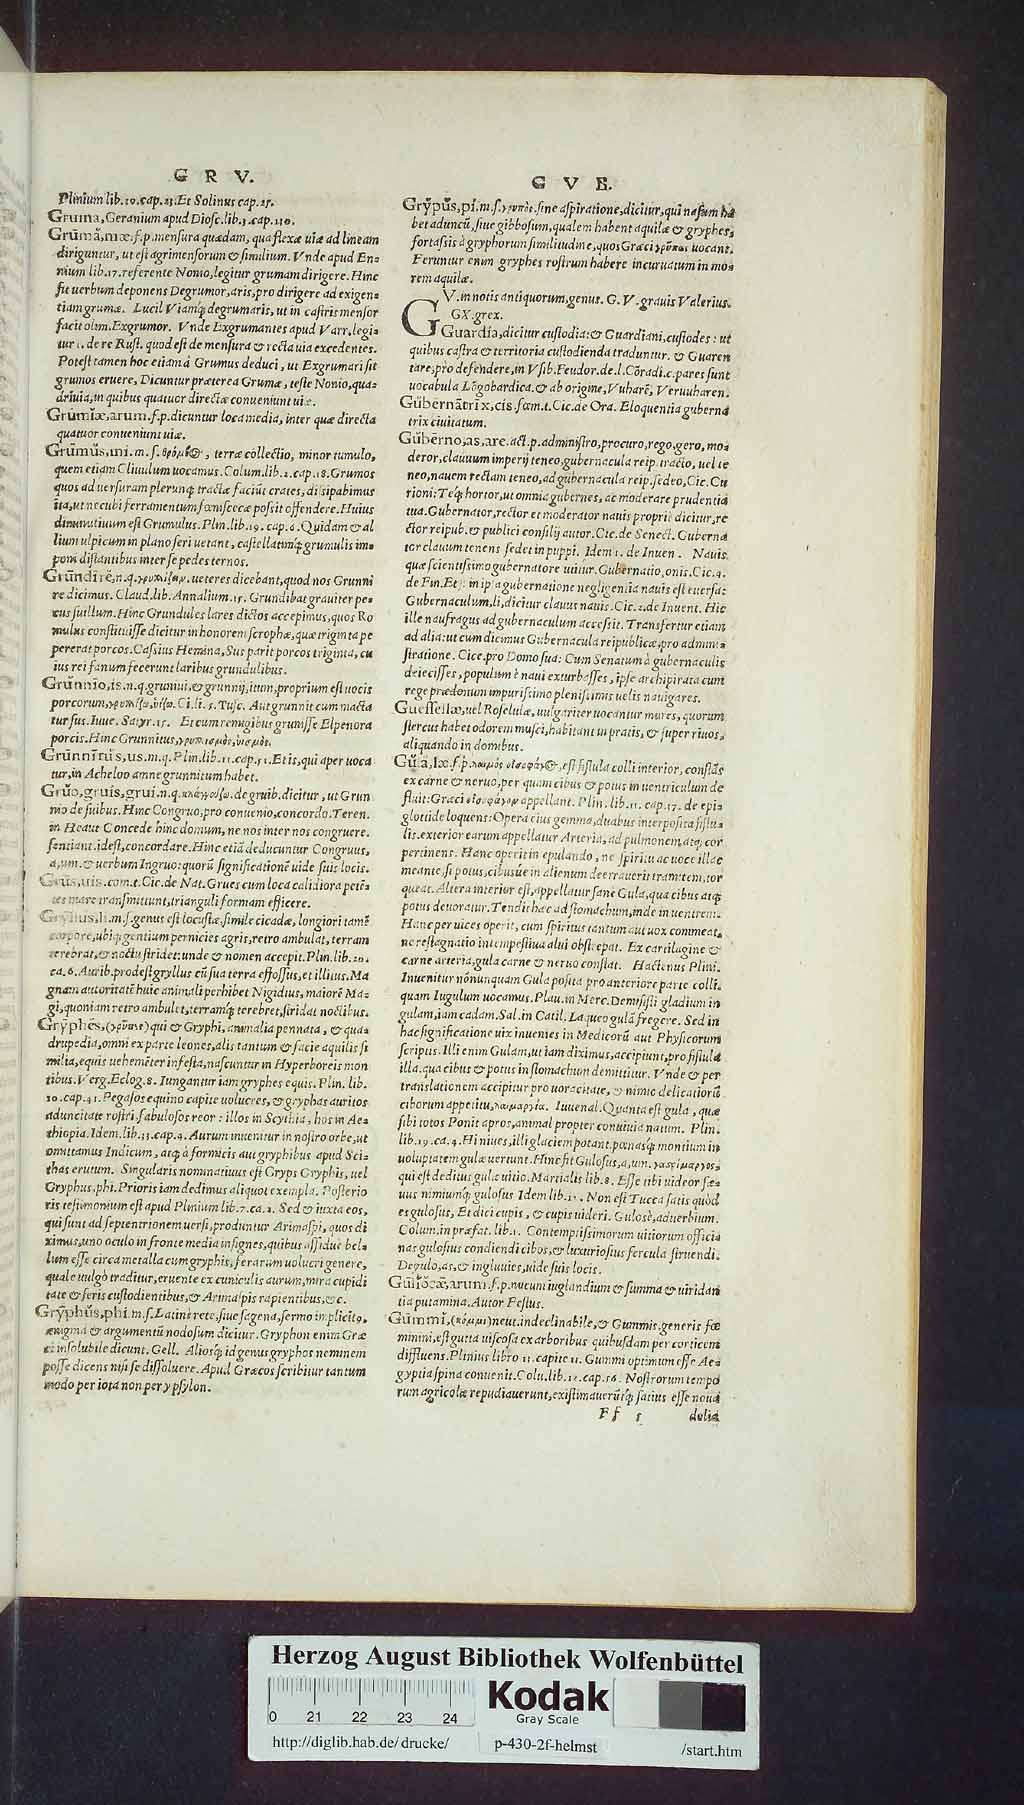 G R V.
Plinium lib.10.cap.23.Et Solinus cap.25.
Gruina, Geranium apud Diosc.lib.3.cap.110.
Grūmă, mæ.f.p.mensura quædam, qua flexæ uiæ ad lineam
diriguntur, ut est agrimensorum & similium. Vnde apud En=
nium lib.17.referente Nonio, legitur grumam dirigere. Hinc
fit uerbum deponens Degrumor, aris, pro dirigere ad exigen=
tiam grumæ. Lucil Viamq́; degrumaris, ut in castris mensor
facit olim. Exgrumor. Vnde Exgrumantes apud Varr. legi=
tur 1. de re Rust. quod est de mensura & recta uia excedentes.
Potest tamen hoc etiam à Grumus deduci, ut Exgrumari sit
grumos eruere, Dicuntur præterea Grumæ, teste Nonio, qua=
driuia, in quibus quatuor directæ conueniunt uiæ.
Grūmiæ, arum.f.p.dicuntur loca media, inter quæ directa
quatuor conueniunt uiæ.
Grūmŭs, mi.m.s. terræ collectio, minor tumulo,
quem etiam Cliuulum uocamus. Colum.lib.2.cap.18.Grumos
quos ad uersuram plerunq; tractæ faciūt crates, dissipabimus
ita, ut necubi ferramentum fœnisecæ possit offendere. Huius
diminutiuum est Grumulus. Plin.lib.19.cap.6. Quidam & al
lium ulpicum in plano seri uetant, castellatimq́; grumulis im=
poni distantibus inter se pedes ternos.
Grūndīrĕ, n.q. ueteres dicebant, quod nos Grunni
re dicimus. Claud.lib.Annalium.15. Grundibat grauiter pe=
cus suillum. Hinc Grundules lares dictos accepimus, quos Ro
mulus constituisse dicitur in honorem scrophæ, quæ triginta pe
pererat porcos. Cassius Hemina, Sus parit porcos triginta, cu
ius rei fanum fecerunt laribus grundulibus.
Grŭnnĭo, is.n.q.grunniui, & grunnij, itum, proprium est uocis
porcorum, Ci.li.5. Tusc. Aut grunnit cum macta
tur sus. Iuue. Satyr.15. Et cum remigibus grunisse Elpenora
porcis. Hinc Grunnitus,
Grūnnītŭs, us.m.q. Plin.lib.11.cap.51. Et is, qui aper uoca
tur, in Acheloo amne grunnitum habet.
Grŭo, gruis, grui.n.q. de gruib. dicitur, ut Grun
nio de suibus. Hinc Congruo, pro conuenio, concordo. Teren.
in Heaut Concede hinc domum, ne nos inter nos congruere.
sentiant. id est, concordare. Hinc etiā deducuntur Congruus,
a, um. & uerbum Ingruo: quorū significationē uide suis locis.
Grūs, uis.com.t.Cic.de Nat. Grues cum loca calidiora petē=
tes mare transmittunt, trianguli formam efficere.
Gryllus, li.m.s.genus est locustæ, simile cicadæ, longiori tamē
corpore, ubiq; gentium pernicies agris, retro ambulat, terram
terebrat, & noctu stridet: unde & nomen accepit. Plin.lib.20.
ca.6. Aurib. prodest gryllus cū sua terra effossus, et illitus, Ma
gnam autoritatē huic animali perhibet Nigidius, maiorē Ma=
gi, quoniam retro ambulet, terramq́; terebret, stridat noctibus.
Grȳphĕs, (γρῦπες) qui & Gryphi, animalia pennata, & qua=
drupedia, omni ex parte leones, alis tantum & facie aquilis si
milia, equis uehemēter infesta, nascuntur in Hyperboreis mon
tibus. Verg. Eclog.8. Iungantur iam gryphes equis. Plin. lib.
10.cap.41. Pegasos equino capite uolucres, & gryphas auritos
aduncitate rostri, fabulosos reor: illos in Scythia, hos in Ae=
thiopia. Idem.lib.33.cap.4. Aurum inuenitur in nostro orbe, ut
omittamus Indicum, atq; à formicis aut gryphibus apud Sci=
thas erutum. Singularis nominatiuus est Gryps Gryphis, uel
Gryphus, phi. Prioris iam dedimus aliquot exempla. Posterio
ris testimonium est apud Plinium lib.7.ca.2. Sed & iuxta eos,
qui sunt ad septentrionem uersi, produntur Arimaspi, quos di
ximus, uno oculo in fronte media insignes, quibus assidue bel=
lum esse circa metalla cum gryphis, ferarum uolucri genere,
quale uulgò traditur, eruente ex cuniculis aurum, mira cupidi
tate & feris custodientibus, & Arimaspis rapientibus, &c.
Grȳphŭs, phi.m.s. Latinè rete, siue sagena, sermo implicit9.
ænigma & argumentū nodosum dicitur. Gryphon enim Græ
ci insolubile dicunt. Gell. Aliosq́; id genus gryphos neminem
posse dicens nisi se dissoluere. Apud Græcos scribitur tantum
modo per iota non per ypsylon.
G V E.
Grȳpŭs, pi.m.s. sine aspiratione, dicitur, qui nasum ha
bet aduncū, siue gibbosum, qualem habent aquilæ & gryphes,
fortassis à gryphorum similitudine, quos Græci γρῦπας uocant.
Feruntur enim gryphes rostrum habere incuruatum in mo=
rem aquilæ.
G V. in notis antiquorum, genus. G. V. grauis Valerius.
GX. grex.
Guardia, dicitur custodia: & Guardiani, custodes: ut
quibus castra & territoria custodienda traduntur. & Guaren
tare, pro defendere, in Vsib. Feudor. de.l. Cōradi.c.pares sunt
uocabula Lōgobardica. & ab origine, Vuharē, Veruuharen.
Gŭbērnātrix, cis.fœm.t.Cic.de Ora. Eloquentia guberna
trix ciuitatum.
Gŭbērno, as, are.act.p.administro, procuro, rego, gero, mo=
deror, clauum imperij teneo, gubernacula reip. tracto, uel te
neo, nauem rectam teneo, ad gubernacula reip. sedeo, Cic. Cu
rioni: Teq́; hortor, ut omnia gubernes, ac moderare prudentia
tua. Gubernator, rector et moderator nauis propriè dicitur, re
ctor reipub. & publici consilij autor. Cic. de Senect. Guberna
tor clauum tenens sedet in puppi. Idem 1. de Inuen. Nauis
quæ scientissimo gubernatore utitur. Gubernatio, onis. Cic.4.
de Fin. Et si in ipsa gubernatione negligentia nauis est euersa:
Gubernaculum, li, dicitur clauus nauis. Cic.2.de Inuent. Hic
ille naufragus ad gubernaculum accessit. Transfertur etiam
ad alia: ut cum dicimus Gubernacula reipublicæ, pro admini=
stratione. Cice. pro Domo sua: Cum Senatum à gubernaculis
deiecisses, populum è naui exturbasses, ipse archipirata cum
rege prædonum impurissimo plenissimis uelis nauigares.
Guessellæ, uel Roselulæ, uulgariter uocantur mures, quorum
stercus habet odorem musci, habitant in pratis, & super riuos,
aliquando in domibus.
Gŭla, læ.f.p. est fistula colli interior, constās
ex carne & neruo, per quam cibus & potus in uentriculum de
fluit: Græci οἰσοφάγον appellant. Plin. lib.11. cap.37. de epi=
glottide loquens: Opera eius gemina, duabus interposita fistu=
lis. exterior earum appellatur Arteria, ad pulmonem, atq; cor
pertinens. Hanc operit in epulando, ne spiritu ac uoce illac
meante, si potus, cibusue in alienum deerrauerit tramitem, tor
queat. Altera interior est, appellatur sanè Gula, qua cibus atq;
potus deuoratur. Tendit hæc ad stomachum, inde in uentrem.
Hanc per uices operit, cum spiritus tantum aut uox commeat,
ne restagnatio intempestiua alui obstrepat. Ex cartilagine &
carne arteria, gula carne & neruo constat. Hactenus Plini.
Inuenitur nōnunquam Gula posita pro anteriore parte colli.
quam Iugulum uocamus. Plau. in Merc. Demisisti gladium in
gulam, iam cadam. Sal. in Catil. Laqueo gulā fregere. Sed in
hac significatione uix inuenies in Medicorū aut Physicorum
scriptis. Illi enim Gulam, ut iam diximus, accipiunt, pro fistula
illa, qua cibus & potus in stomachum demittitur. Vnde & per
translationem accipitur pro uoracitate, & nimio delicatiorū
ciborum appetitu, λαιμαργία. Iuuenal. Quanta est gula, quæ
sibi totos Ponit apros, animal propter conuiuia natum. Plin.
lib.19.ca.4. Hi niues, illi glaciem potant, pœnasq́; montium in
uoluptatem gulæ uerunt. Hinc fit Gulosus, a, um.
qui est deditus gulæ uitio. Martialis lib.8. Esse tibi uideor sæ=
uus nimiumq́; gulosus Idem lib.12. Non est Tucca satis quòd
es gulosus, Et dici cupis, & cupis uideri. Gulosè, aduerbium.
Colum. in præfat. lib.1. Contemptissimorum uitiorum officia
nas gulosius condiendi cibos, & luxuriosius fercula struendi.
Degulo, as, & ingluuies, uide suis locis.
Gŭlĭŏcæ, arum.f.p.nucum iuglandium & summa & uiridan
tia putamina. Autor Festus.
Gūmmi, (κόμμι) neut. indeclinabile, & Gummis. generis fœ
minini, est gutta uiscosa ex arboribus quibusdam per corticem
diffluens. Plinius libro 13.capite 11. Gummi optimum esse Ae=
gyptia spina conuenit. Colu.lib.12.cap.56. Nostrorum tempo
rum agricolæ repudiauerunt, existimauerūtq́; satius esse noua
Ff 5 dolia
Herzog August Bibliothek Wolfenbüttel
Kodak
Gray Scale
0 21 22 23 24
http://diglib.hab.de/drucke/ p-430-2f-helmst /start.htm